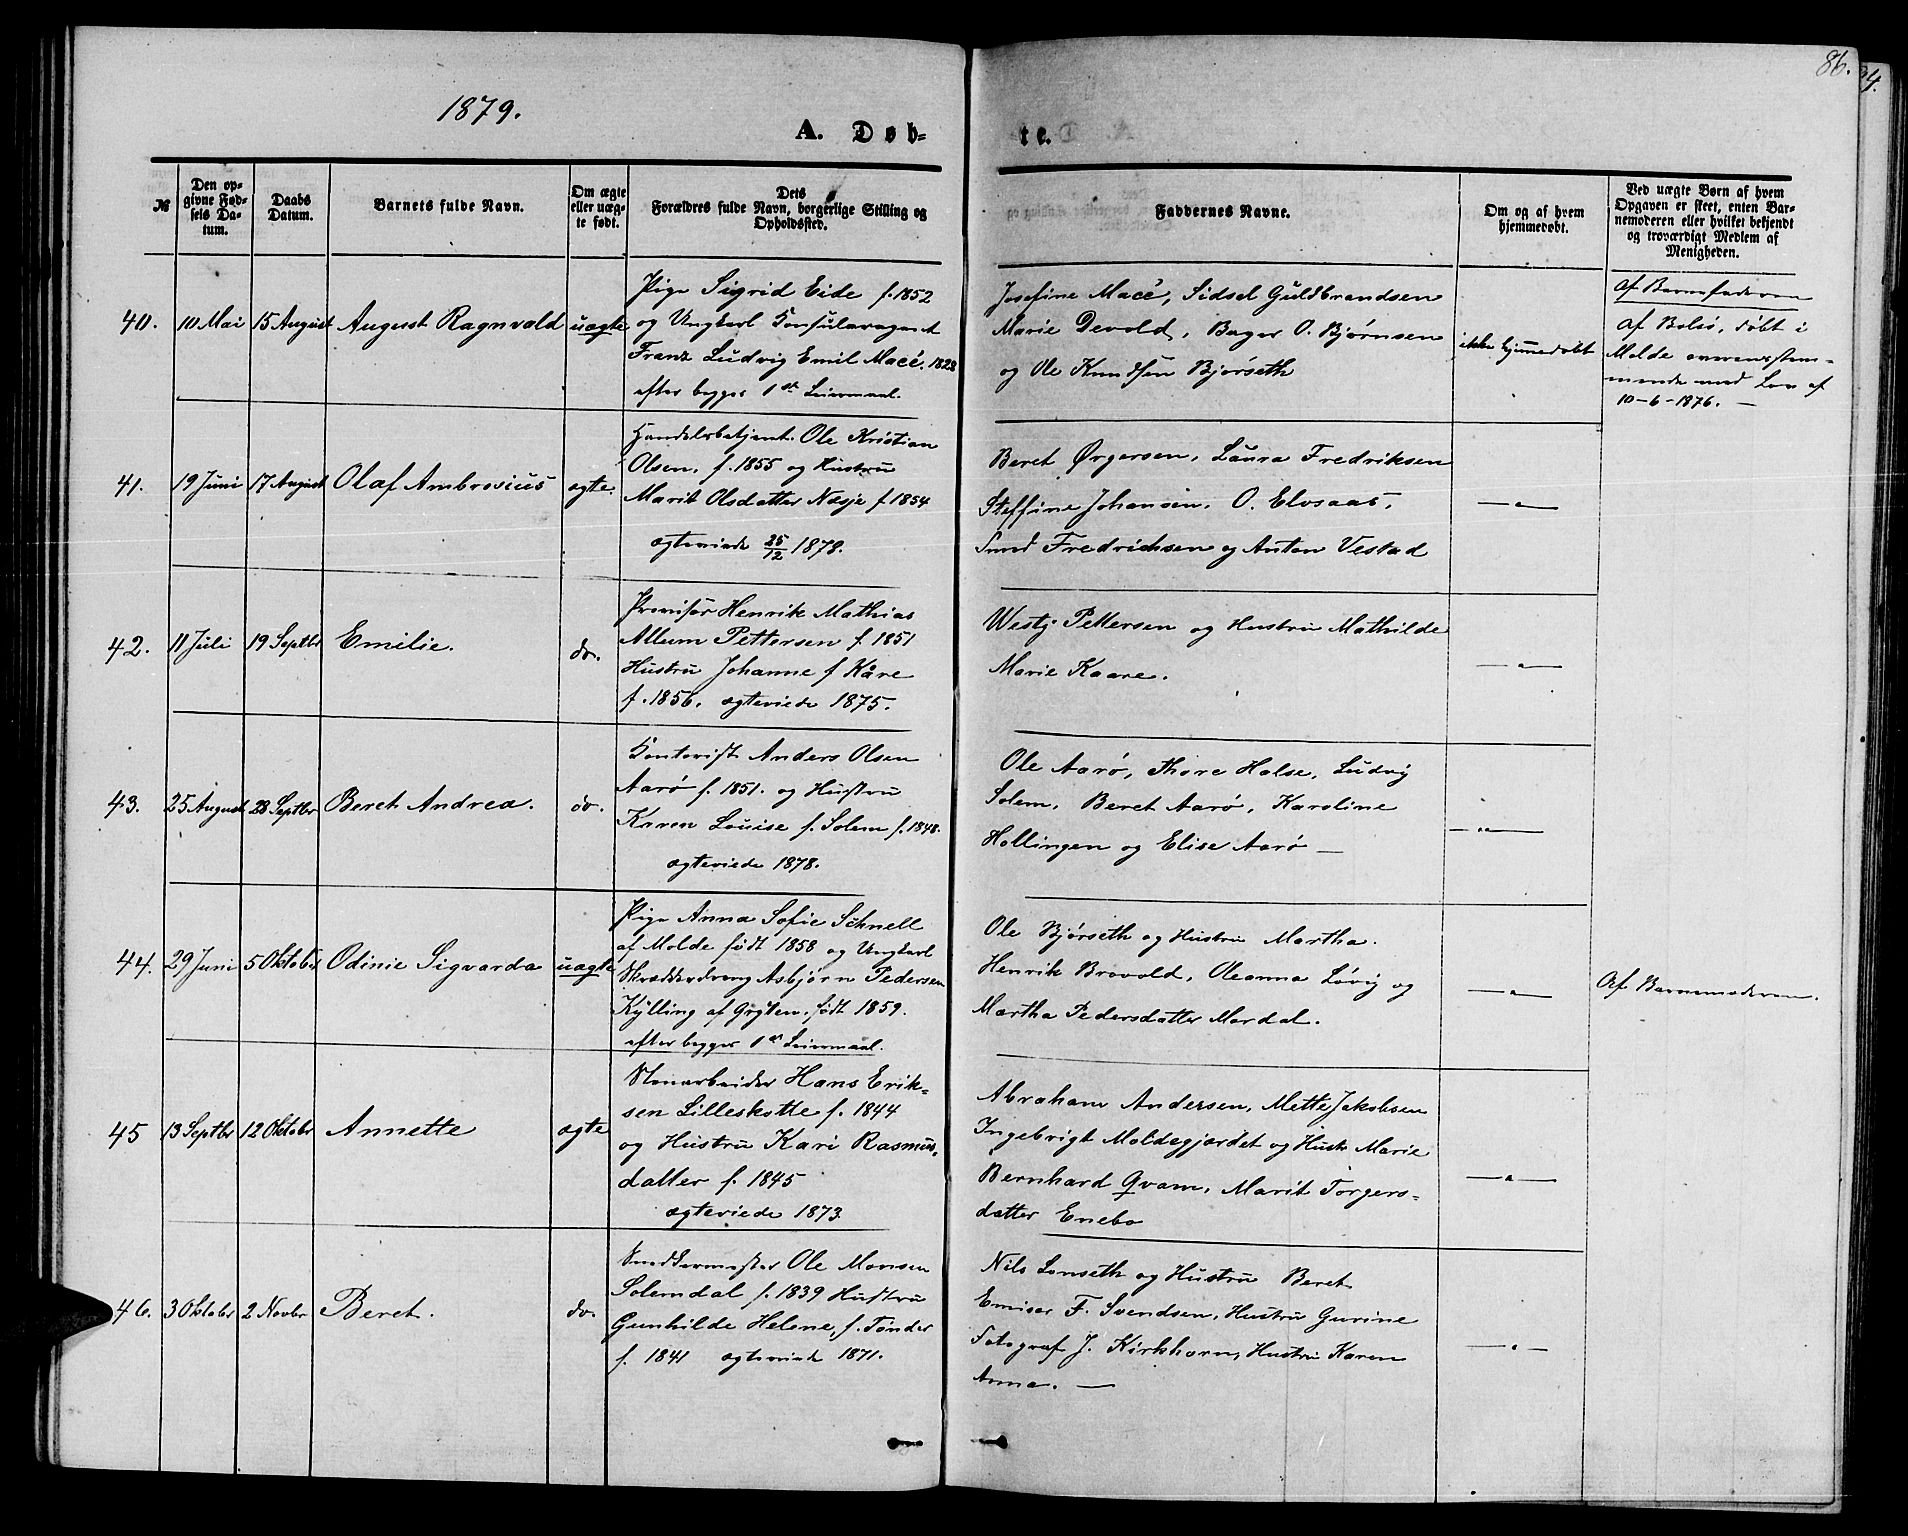 1879.
86.
4.
A. Døb-
te.
№
Den op-
givne Fød-
sels Da-
tum.
Daabs
Datum.
Barnets fulde Navn.
Om ægte
eller uæg-
te født.
Dets
Forældres fulde Navn, borgerlige Stilling og
Opholdssted.
Faddernes Navne.
Om og af hvem
hjemmedøbt.
Ved uægte Børn af hvem
Opgaven er skeet, enten Bar-
nemoderen eller hvilket bekjendt
og troværdigt Medlem af
Menigheden.
40. 10 Mai 15 August August Ragnvald uægte
Pige Sigrid Eide f. 1852
og Ungkarl Konsularagent
Franz Ludvig Emil Macé. 1828
efter begges 1ste Leiermaal.
Josefine Macé, Sidsel Guldbrandsen
Marie Devold, Bager O. Bjørnsen
og Ole Knudsen Bjørseth
ikke hjemmedøbt
af Barnefaderen
af Bolsø, døbt i
Molde overensstem-
mende med Lov af
10-6-1876. —
41. 19 Juni 17 August Olaf Ambrosius ægte.
Handelsbetjent. Ole Kristian
Olsen, f. 1855 og Hustru
Marit Olsdatter Nesje f. 1854
ægteviede 25/12 1878.
Beret Ørgersen, Laura Fredriksen
Steffine Johansen, O. Elvsaas,
Fredrichsen og Anton Vestad
—"—
42. 11 Juli 19 Septbr Emilie. do.
Provisor Henrik Mathias
Allum Pettersen f. 1851
Hustru Johanne f Kåre
f. 1856. ægteviede 1875.
Westy Pettersen og Hustru Mathilde
Marie Kaare.
—"—
43. 25 August 28 Septbr Beret Andrea. do.
Kontorist Anders Olsen
Aarø f. 1851. og Hustru
Karen Louise f. Solem f. 1848.
ægteviede 1878.
Ole Aarø, Thore Halse, Ludvig
Solem, Beret Aarø, Karoline
Hollingen og Elise Aarø —
—"—
44. 29 Juni 5 Oktober Odinie Sigvarda uægte
Pige Anna Sofie Schnell
af Molde født 1858 og Ungkarl
Skrædderdreng Asbjørn Pedersen
Kylling af Grytten, født 1859.
efter begges 1ste Leiermaal.
Ole Bjørseth og Hustru Martha.
Henrik Brovold, Oleanna Løvig og
Martha Pedersdatter Mordal.
—"—
Af Barnemoderen.
45 13 Septbr 12 Oktober Annette ægte
Stenarbeider Hans Erik-
sen Lilleskotte f. 1844
og Hustru Kari Rasmus-
datter f. 1845
ægteviede 1873
Abraham Andersen, Mette Jakobsen
Ingebrigt Moldegjærdet og Hustr Marie
Bernhard Qvam, Marit Torgers-
datter Enebo
—"—
46. 3 Oktober 2 Novbr Beret. do.
Ole Monsen
Solemdal f. 1839 Hustru
Gunhilde Helene, f. Tønder
f. 1841 ægteviede 1871.
Nils Lønseth og Hustru Beret
Emisær F. Svendsen, Hustru Gurine
Fotograf J. Kirkhorn, Hustru Karen
Anna. —
—"—